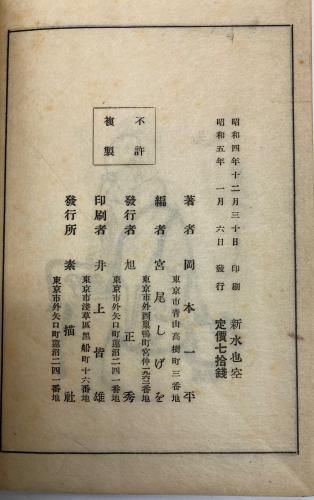 昭和四年十二月三十日 印刷
昭和五年 一月 六日 發行
新水也空
定價七拾錢
不許
複製
著者 岡本一平
東京市青山高樹町三番地
編者 宮尾しげを
東京市外西巢鴨町宮仲一九六三番地
發行者 旭正秀
東京市外矢口町蓮沼二四一番地
印刷者 井上皆雄
東京市淺草區黑船町十六番地
發行所 素描社
東京市外矢口町蓮沼二四一番地